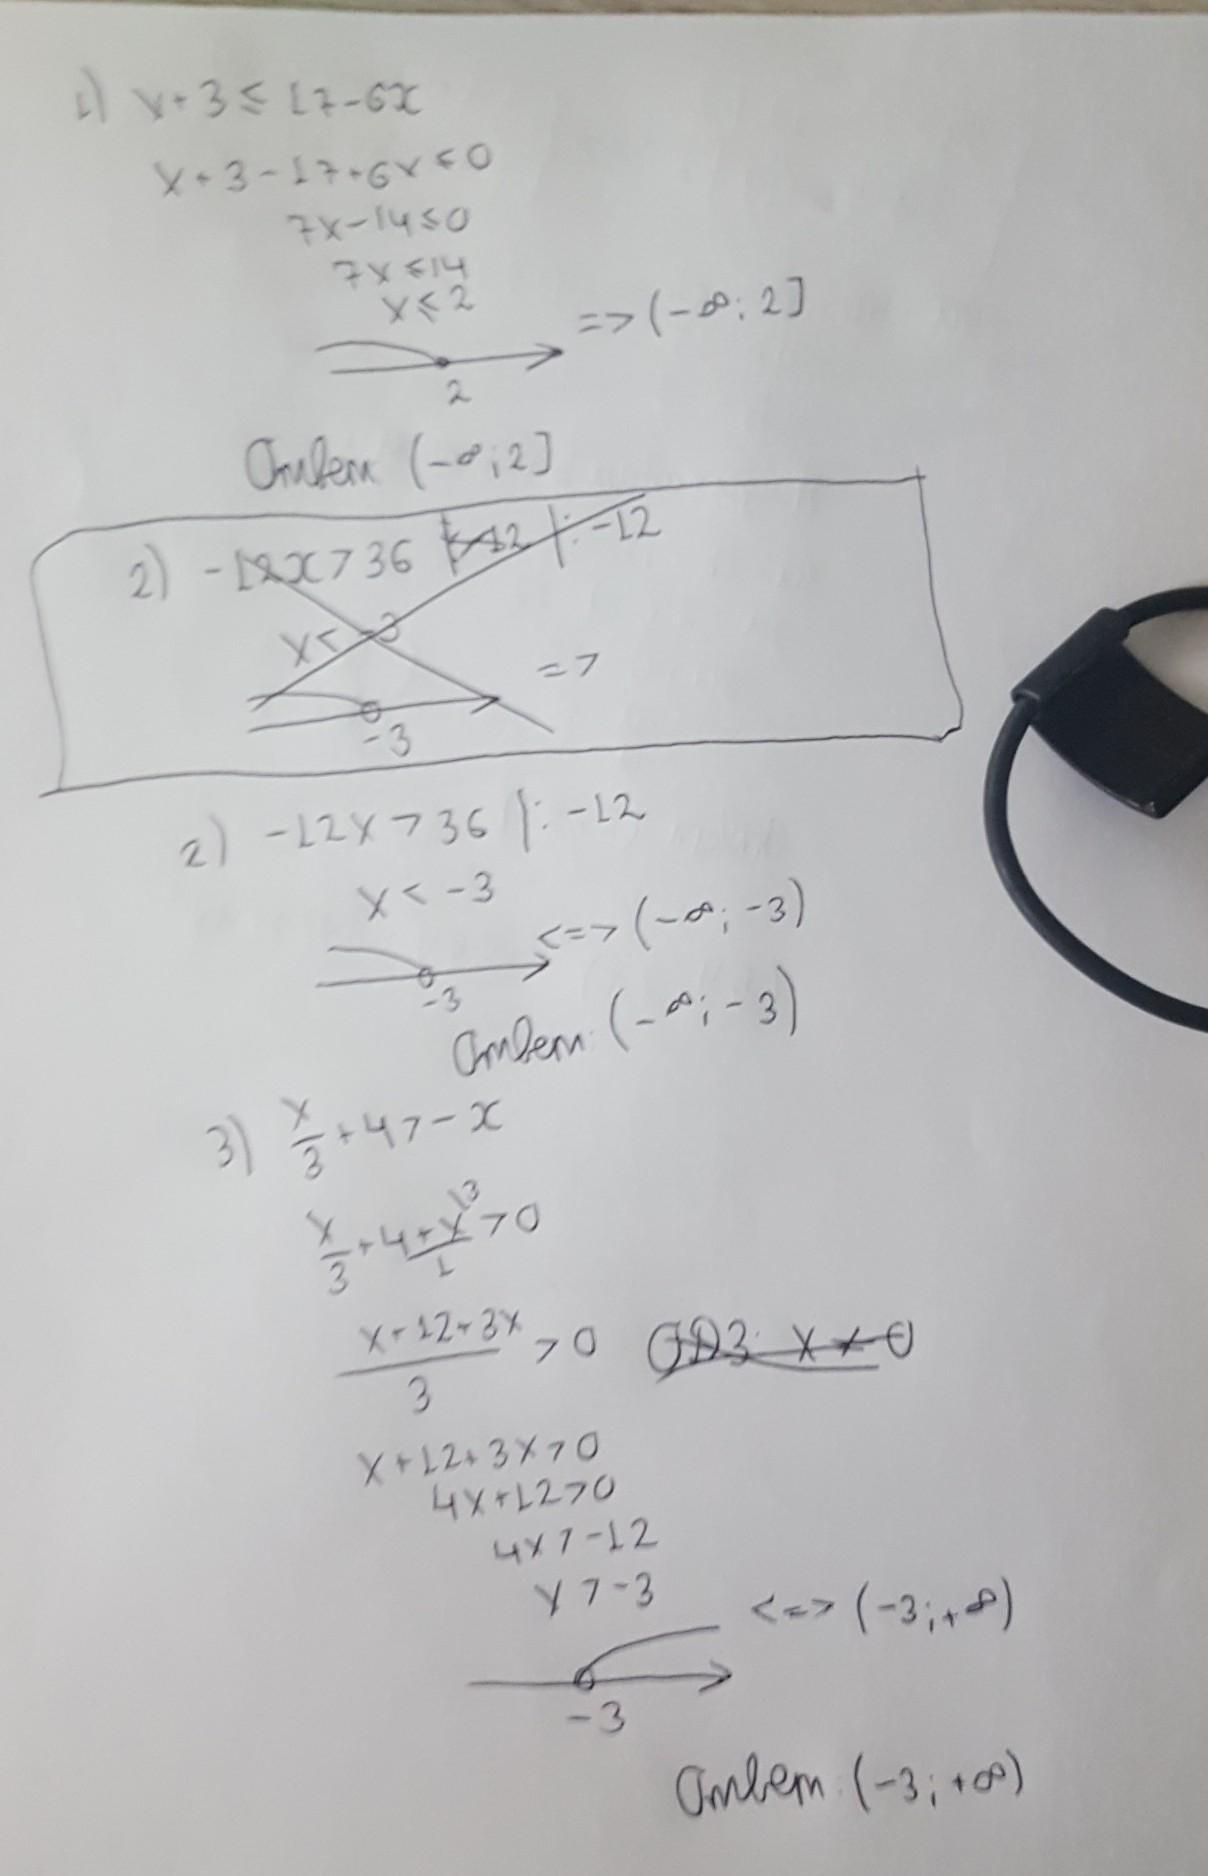 1) x+3≤17-6x
x+3-17+6x≤0
7x-14≤0
7x≤14
x≤2
=> (-∞; 2]
2
Ответ (-∞; 2]
2) -12x>36 |: -12
x< -3
=>
-3
2) -12x>36 |: -12
x< -3
<=> (-∞; -3)
-3
Ответ: (-∞; -3)
3) x/3+4>-x
x/3+4+x/1\3>0
(x+12+3x)/3>0 ОДЗ: x≠0
x+12+3x>0
4x+12>0
4x>-12
x>-3
<=> (-3; +∞)
-3
Ответ: (-3; +∞)